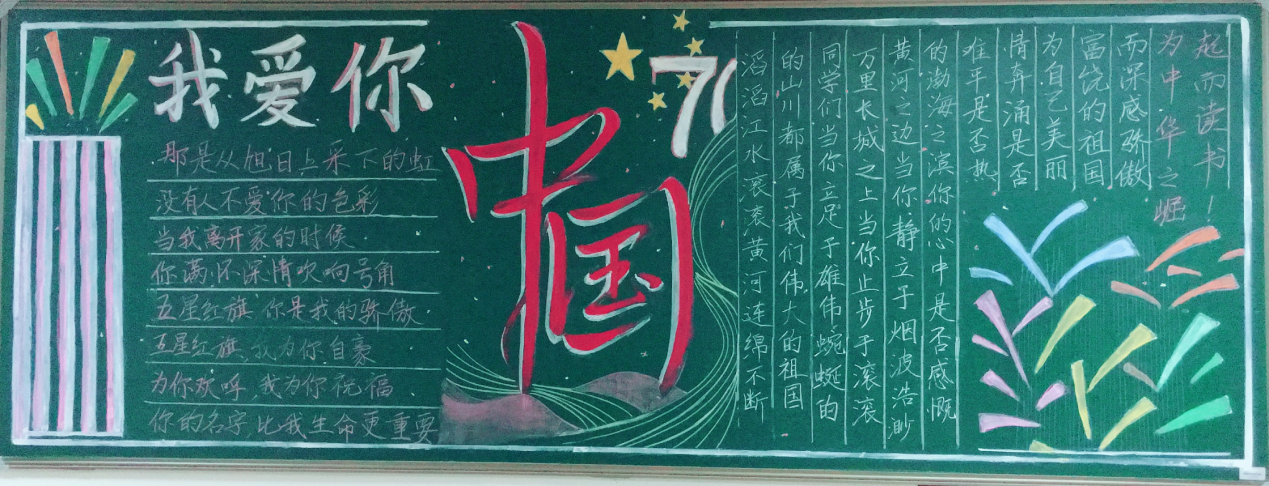 我爱你
中国
71
那是从旭日上采下的虹
没有人不爱你的色彩
当我离开家的时候
你满怀深情吹响号角
五星红旗 你是我的骄傲
五星红旗,我为你自豪
为你欢呼,我为你祝福
你的名字,比我生命更重要
滔滔江水滚滚黄河连绵不断
的山川都属于我们伟大的祖国
同学们当你立足于雄伟蜿蜒的
万里长城之上当你止步于滚滚
黄河之边当你静立于烟波浩渺
的渤海之滨你的心中是否感慨
难平是否热
情奔涌是否
为自己美丽
富饶的祖国
而深感骄傲
为中华之崛
起而读书！